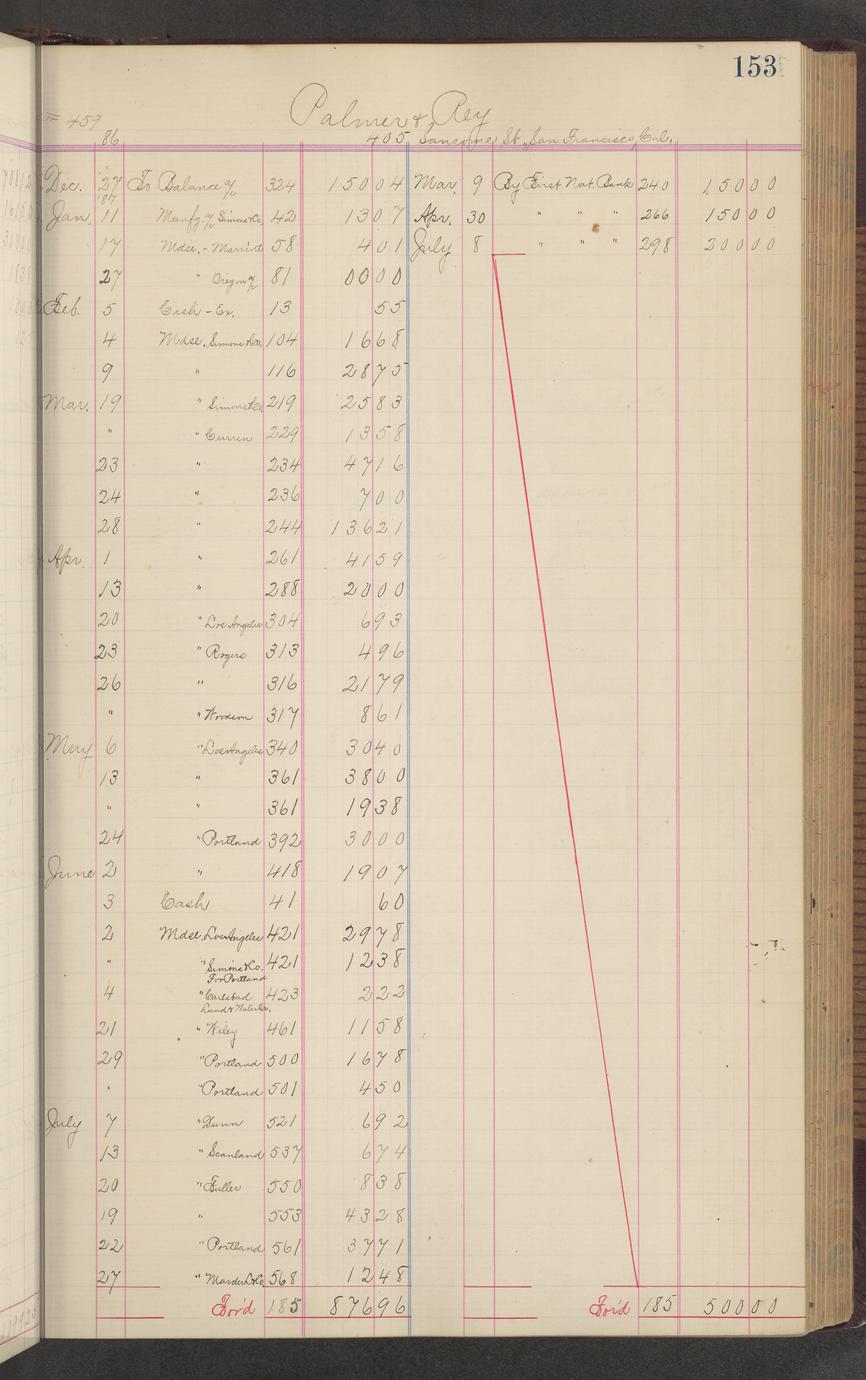 153
# 459
Palmer & Rey
86 405 Sansome St., San Francisco, Cal.
Dec. 27 To Balance a/c 324 150 04 Mar. 9 By First Nat. Bank 240 150 00
'87
Jan. 11 Manfg. a/c Simons Co. 42 13 07 Apr. 30 " " " 266 150 00
17 Mdse. - Marriott 58 4 01 July 8 " " " 298 200 00
27 " Oregon a/c 81 00 00
Feb. 5 Cash - Ex. 13 55
4 Mdse. Simons & Co. 104 16 68
9 " 116 28 75
Mar. 19 " Simons & Co. 219 25 83
" " Curren 229 13 58
23 " 234 47 16
24 " 236 7 00
28 " 244 136 21
Apr. 1 " 261 41 59
13 " 288 20 00
20 " Los Angeles 304 6 93
23 " Rogers 313 4 96
26 " 316 21 79
" " Woodson 317 8 61
May 6 " Los Angeles 340 30 40
13 " 361 38 00
" " 361 19 38
24 " Portland 392 30 00
June 2 " 418 19 07
3 Cash 41 60
2 Mdse. Los Angeles 421 29 78
" " Simons & Co. 421 12 38
For Portland
4 " Carlsbad 423 2 22
Land & Water Co.
21 " Wiley 461 11 58
29 " Portland 500 16 78
" " Portland 501 4 50
July 7 " Dunn 521 6 92
13 " Scanland 537 6 74
20 " Fuller 550 8 38
19 " 553 43 28
22 " Portland 561 37 71
27 " Marder L & Co. 568 12 48
For'd 185 876 96 For'd 185 500 00